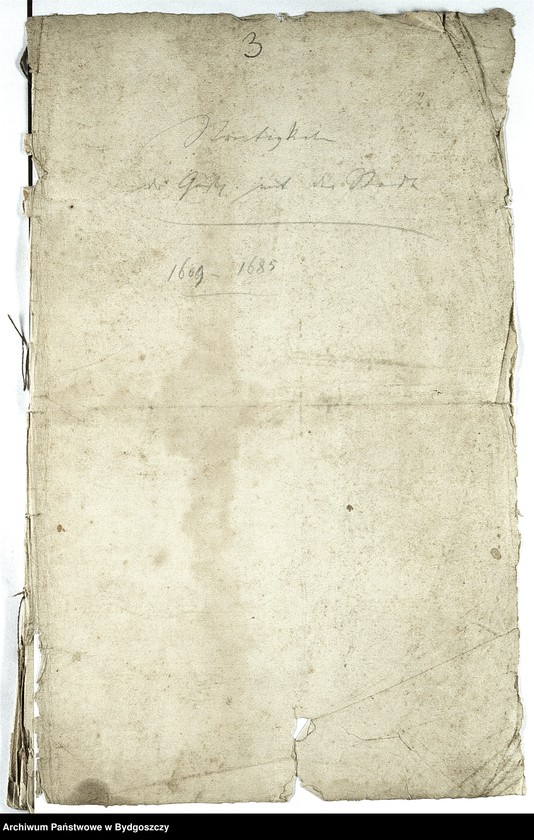 3
Streitigkeiten
mit der Stadt
1609 - 1685
Archiwum Państwowe w Bydgoszczy